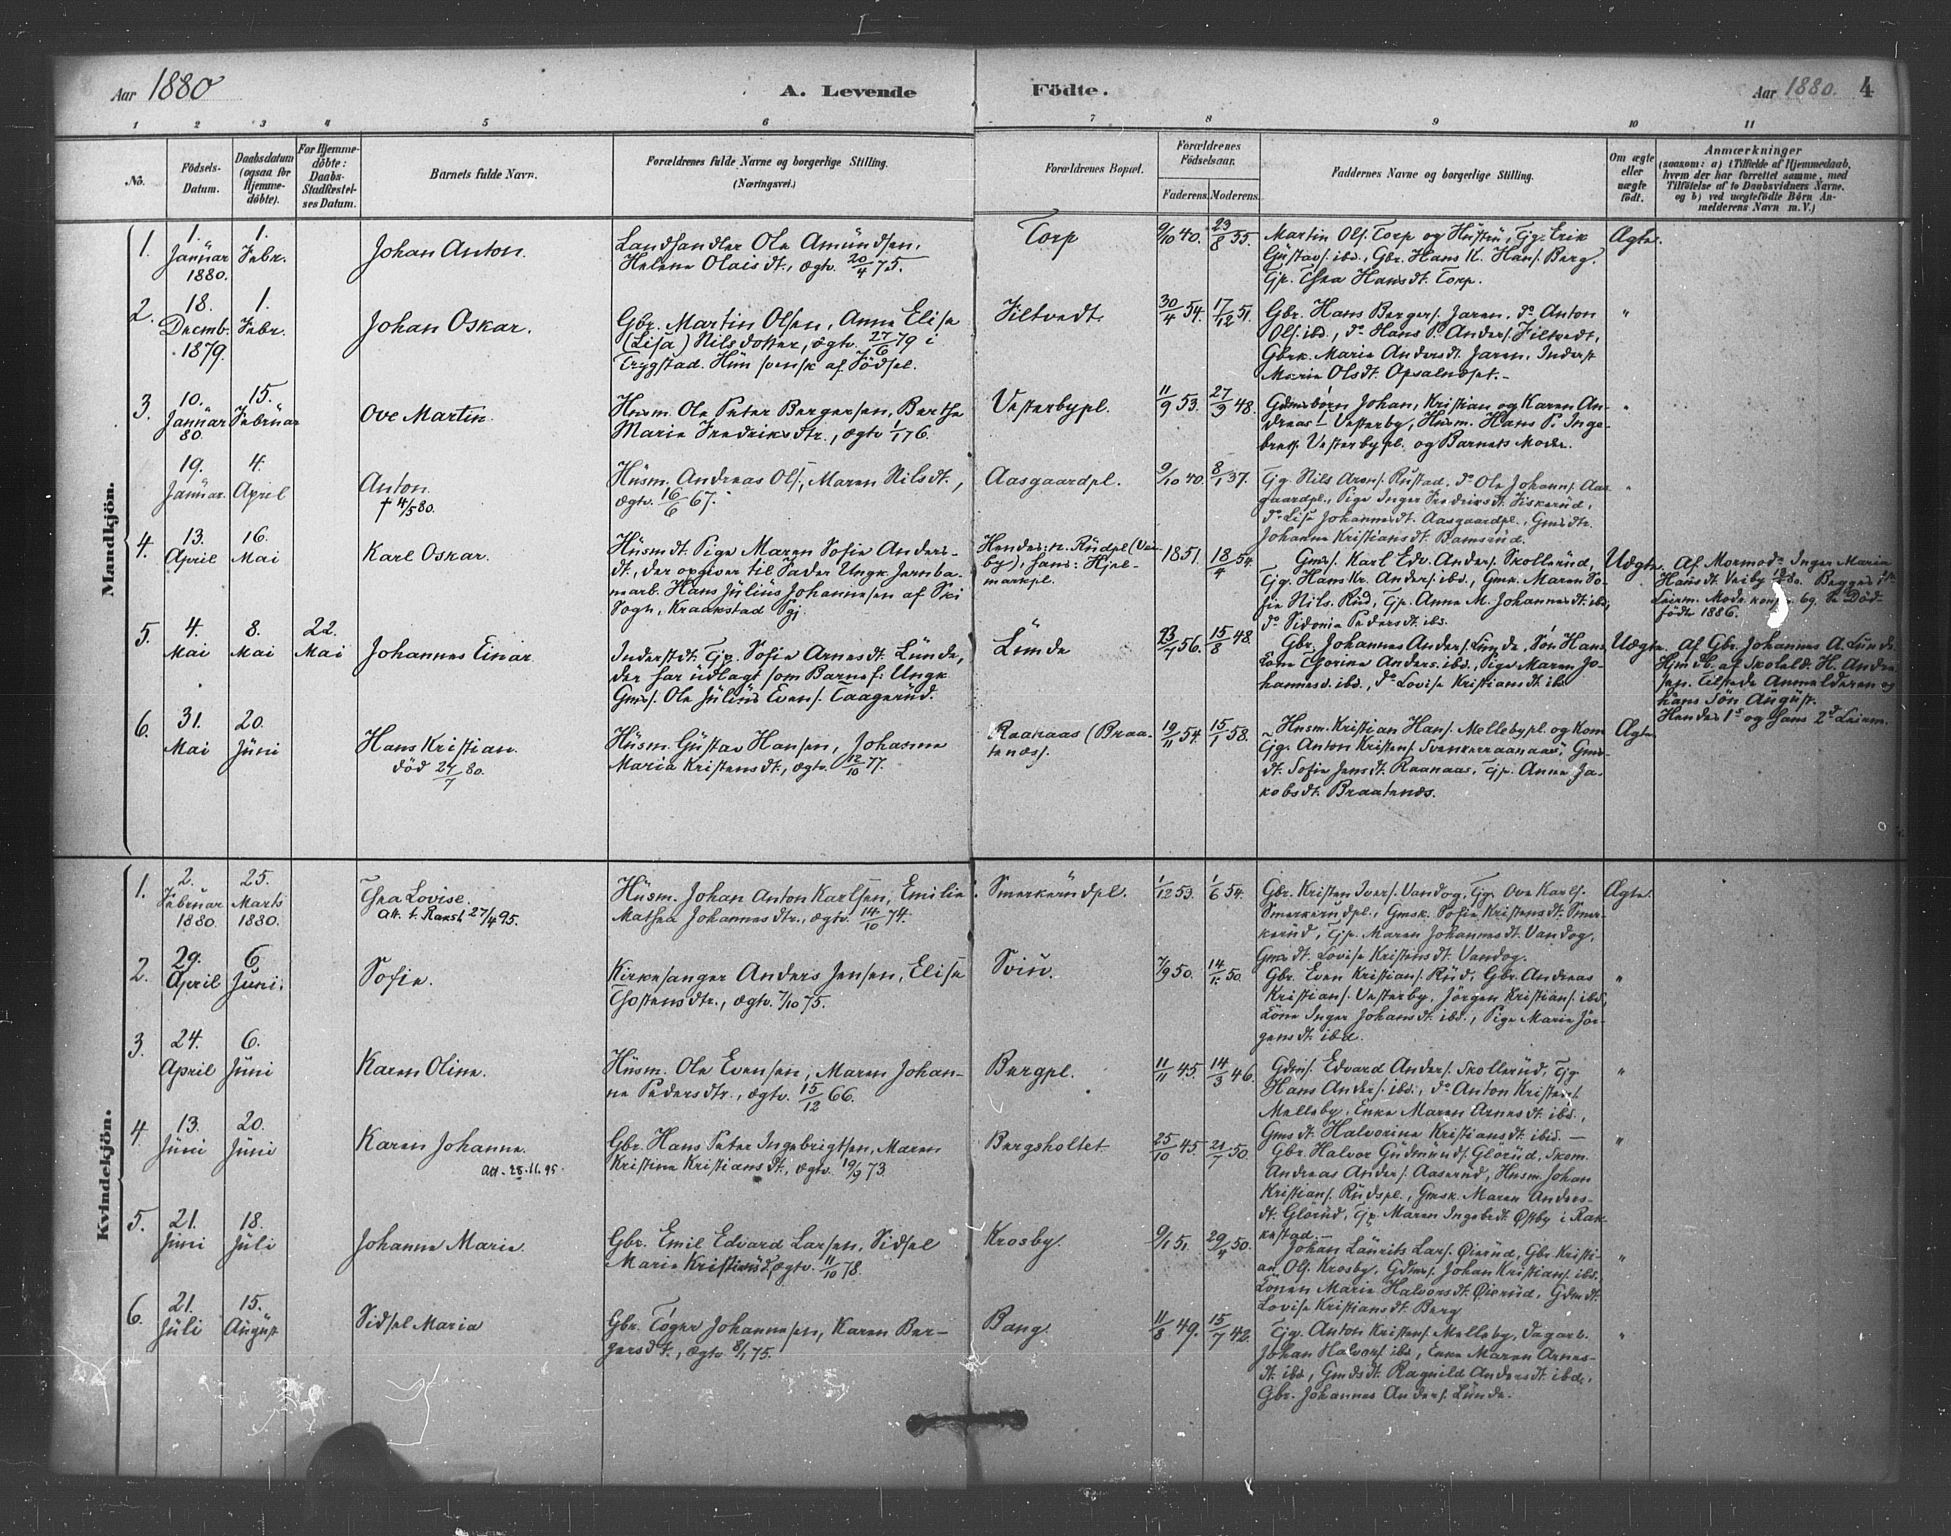 Aar 1880
A. Levende
Födte.
Aar 1880. 4
1 2 3 4 5 6 7 8 9 10 11
No.
Födsels-
Datum.
Daabsdatum
(ogsaa for
Hjemme-
döbte).
For Hjemme-
döbte:
Daabs-
Stadfæstel-
ses Datum.
Barnets fulde Navn.
Forældrenes fulde Navne og borgerlige Stilling.
(Næringsvei.)
Forældrenes Bopæl.
Forældrenes
Födselsaar.
Faderens. Moderens.
Faddernes Navne og borgerlige Stilling.
Om ægte
eller
uægte
födt.
Anmærkninger
(saasom: a) i Tilfælde af Hjemmedaab,
hvem der har forrettet samme, med
Tilföielse af to Daabsvidners Navne,
og b) ved uægtefödte Börn An-
melderens Navn m.V.)
Mandkjön.
1.
1.
Januar
1880.
1.
Febr.
Johan Anton.
Landhandler Ole Amundsen,
Helene Olaisdt., ægtv. 20/4 75.
Torp
9/10 40.
23/8 55.
Martin Ols. Torp og Hustru, Gg. Erik
Gustavs. ibd., Gbr. Hans K. Hans. Berg.
Gp. Thea Hansdt. Torp.
Ægte.
2.
18.
Decmb.
1879.
1.
Febr.
Johan Oskar.
Gbr. Martin Olsen, Anne Elise
(Lisa) Nilsdotter, ægtv. 27/6 79 i
Trygstad. Hun svensk af Födsel.
Filtvedt.
30/4 54.
17/12 51.
Gbr. Hans Bergers. Jaren, do Anton
Ols. ibd., do Hans P. Anders. Filtvedt,
Gbrk. Marie Andersdt. Jaren, Inderst
Marie Olsdt. Opsalnæset.
"
3.
10.
Januar
80
15.
Februar
Ove Martin.
Husm. Ole Peter Bergersen, Berthe
Marie Fredriksdtr., ægtv. 1/1 76.
Vesterbypl.
11/9 53.
27/9 48.
Gdmsbörn Johan, Kristian og Karen An-
dreas- Vesterby, Husm. Hans P. Inge-
brets. Vesterbypl. og Barnets Moder.
"
19.
Januar.
4.
April
Anton.
† 4/5 80.
Husm. Andreas Ols., Maren Nilsdt.,
ægtv. 16/6 67.
Aasgaardpl.
9/10 40.
8/1 37.
Gg. Nils Arens. Rustad, do Ole Johanns. Aas-
gaardpl., Pige Inger Fredriksdt. Fiskerud,
do Lise Johannesdt. Aasgaardpl., Gmdtr.
Johanne Kristiansdt. Bamsrud.
"
4.
13.
April
16.
Mai
Karl Oskar.
Husmdt. Pige Maren Sofie Anders-
dt., der opgiver til Fader Ungk. Jernba-
nearb. Hans Julius Johannesen af Ski
Sogn, Kraakstad Pgj.
Hendes: n. Rudpl (Ves-
by); hans: Hjel-
markpl.
1851.
18/4 54.
Gms. Karl Edv. Anders. Skollerud,
Gg. Hans Kr. Anders. ibd., Gmk. Maren So-
fie Nils. Rud, Gp. Anne M. Johannesdt. ibd.,
do Sidonie Pedersdt. ibd.
Uægte.
Af Mormod. Inger Maria
Hansdt. Veiby. Begges 1ste
Leierm. Moder konf. 69. Se Död-
födte 1886.
5.
4.
Mai
8.
Mai
22.
Mai
Johannes Einar.
Inderstdt. Gp. Sofie Arnesdt. Lunde,
der har udlagt som Barnef. Ungk.
Gms. Ole Julius Evens. Taagerud.
Lunde
23/7 56.
15/8 48.
Gbr. Johannes Anders. Lunde, Sön Hans,
Kone Thorine Anders. ibd., Pige Maren Jo-
hannesd. ibd., do Lovise Kristiansdt. ibd.
Uægte.
Af Gbr. Johannes A. Lunde.
Hjmdb. af Skolehl. H. Andre-
sen. Tilstede Anmelderen og
hans Sön August.
Hendes 1s og hans 2d Leierm.
6.
31.
Mai
20.
Juni
Hans Kristian.
död 24/7 80.
Husm. Gustav Hansen, Johanne
Maria Kristensdt., ægtv. 12/10 77.
Raanaas (Braa-
tenæs).
19/11 54.
15/1 58.
Husm. Kristian Hans. Mellebypl. og Kone
Gg. Anton Kristens. Svenkerraanaas, Gms-
dt. Sofie Jensdt. Raanaas, Gp. Anne Ja-
kobsdt. Braatenæs.
Ægte.
Kvindekjön.
1.
2.
Februar
1880.
25.
Marts
1880.
Thea Lovise.
Att. t. Ranst 27/4 95.
Husm. Johan Anton Karlsen, Emilie
Mathea Johannesdtr., ægtv. 14/10 74.
Smerkerudpl.
1/12 53.
1/6 54.
Gbr. Kristen Ivers. Vandog, Gg. Ove Karls.
Smerkerudpl., Gmsk. Sofie Kristensdt. Smer-
kerud, Gp. Maren Johannesdt. Vandog,
Gmsdt. Lovise Kristensdt. Vandog.
Ægte.
2.
29.
April
6.
Juni.
Sofie.
Kirkesanger Anders Jensen, Elise
Thostensdtr., ægtv. 7/10 75.
Sviu.
7/9 50.
14/11 50.
Gbr. Even Kristians. Rud, Gbr. Andreas
Kristians. Vesterby, Jörgen Kristians. ibd.,
Kone Inger Johansdt. ibd., Pige Marie Jör-
gensdt. ibd.
"
3.
24.
April
6.
Juni
Karen Oline.
Husm. Ole Evensen, Maren Johan-
ne Pedersdtr., ægtv. 15/12 66.
Bergpl.
11/11 45.
14/3 46.
Gdms. Edvard Anders. Skollerud, Gg
Hans Anders. ibd., do Anton Kristens.
Melleby, Enke Maren Arnesdt. ibd.,
Gmsdt. Halvorine Kristiansdt. ibid.
"
4
13.
Juni
20.
Juni
Karen Johanne.
Att. 25.11.95.
Gbr. Hans Peter Ingebrigtsen, Maren
Kristine Kristiansdt., ægtv. 19/9 73
Bergsholtet
25/10 45.
21/7 50.
Gbr. Halvor Gudmunds. Glorud, Skom.
Andreas Anders. Aaserud, Husm. Johan
Kristians. Rudspl., Gmsk. Maren Anders-
dt. Glorud, Gp. Maren Ingebrdt. Østby i Rak-
kestad.
"
5.
21.
Juni
18.
Juli
Johanne Marie.
Gbr. Emil Edvard Larsen, Sidsel
Marie Kristiansd., ægtv. 11/10 78.
Krosby.
9/1 51.
29/4 50.
Johan Laurits Lars. Øierud, Gbr. Kristi-
an Ols. Krosby, Gdms. Johan Kristians. ibd.,
Konen Marie Halvorsdt. Øierud, Gdmdt.
Lovise Kristiansdt. Berg
"
6.
21.
Juli
15.
August
Sidsel Maria
Gbr. Töger Johannesen, Karen Ber-
gersdt., ægtv. 8/1 75.
Bang.
11/8 49.
15/7 42.
Gg. Anton Kristens. Melleby, Dagarb.
Johan Halvors. ibd., Enke Maren Arnes-
dt. ibd., Gmdsdt. Ragnild Andersdt. ibd.,
Gbr. Johannes Anders. Lunde.
"